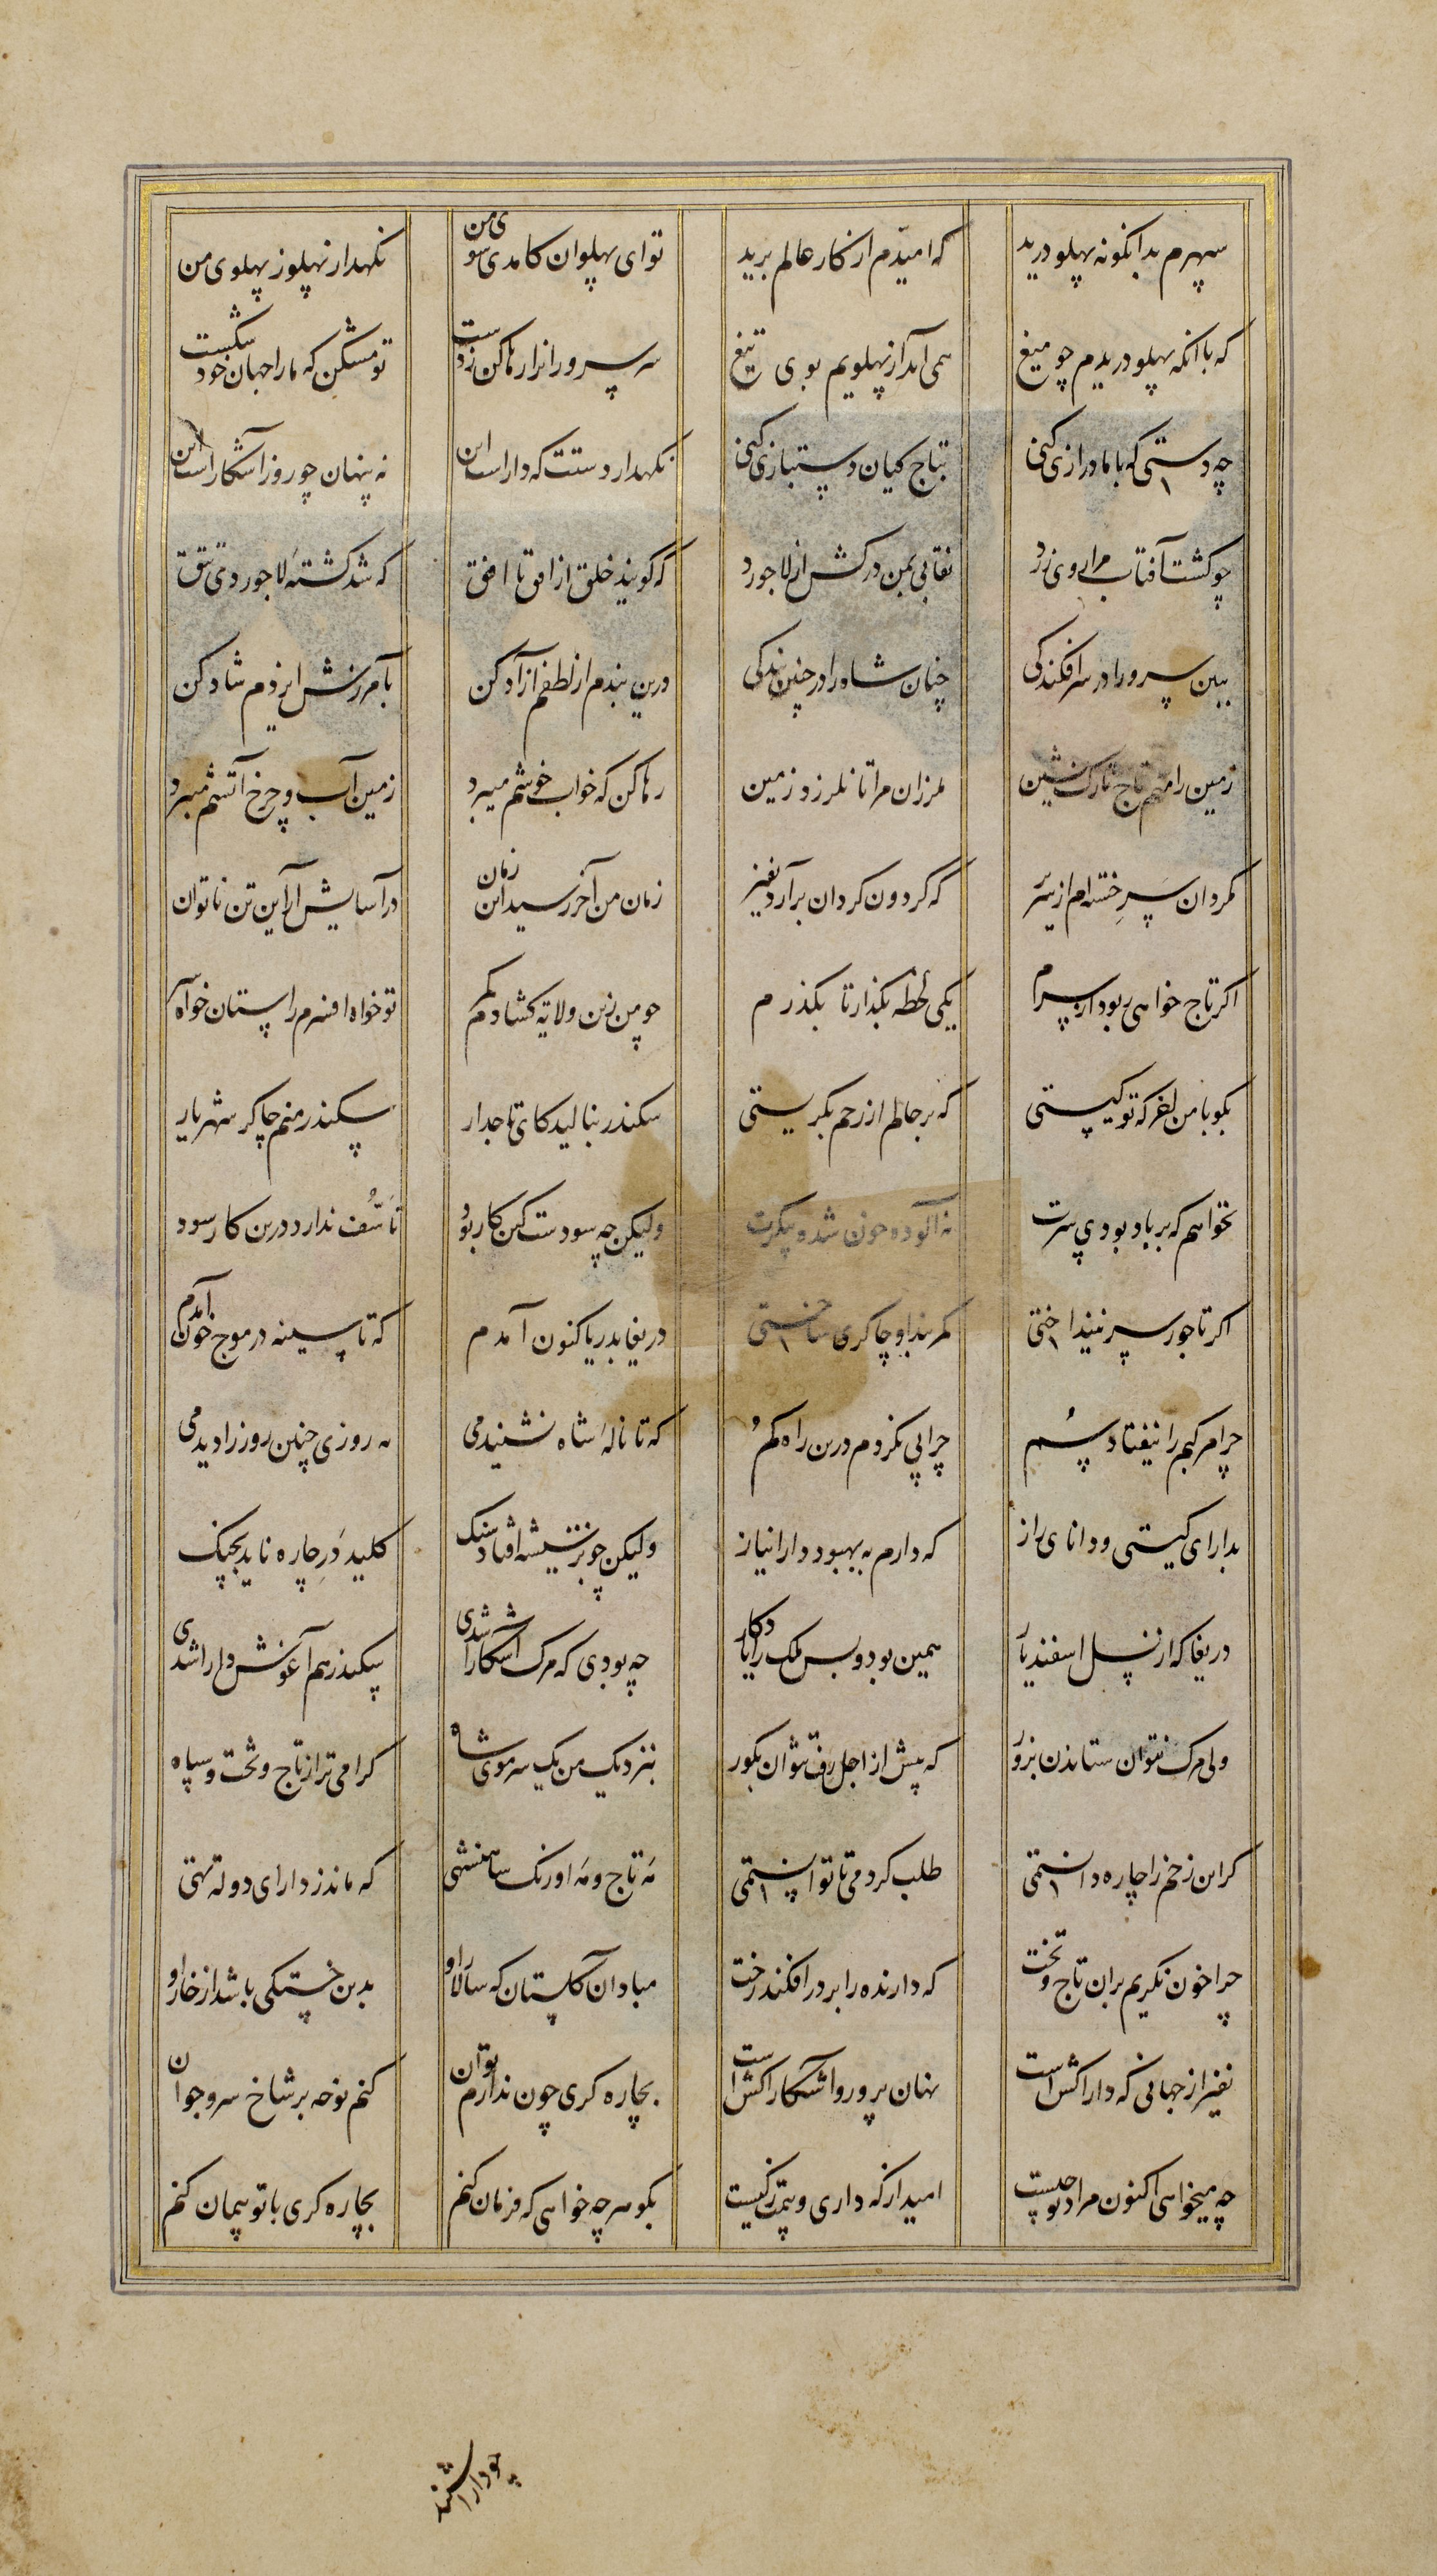 سپهرم بدانگونه پهلو درید که امیدم از کار عالم برید تو ای پهلوان کامدی سوی من نگهدار پهلو ز پهلوی من
که با آنکه پهلو دریدم چو میغ همی آید از پهلویم بوی تیغ سر سروران را رها کن ز دست تو مشکن که ما را جهان خود شکست
چه دستی که با ما درازی کنی بتاج کیان دستبازی کنی نگهدار دستت که داراست این نه پنهان چو روز آشکار است این
چو گشت آفتاب مرا روی زرد نقابی بمن درکش از لاجورد که گویند خلق از افق تا افق که شد کشته لاجوردی تتق
ببین سرو را در سرافکندگی چنان شاه را در چنین بندگی درین بندم از لطف آزاد کن بآمرزش ایزدم شاد کن
زمین را منم تاج تارک نشین ملرزان مرا تا نلرزد زمین رها کن که خواب خوشم میبرد زمین آب و چرخ آتشم میبرد
مگردان سر خسته ام از سریر که گردون گردان برآرد نفیر زمان من آخر رسید این زمان در آسایش آر این تن ناتوان
اگر تاج خواهی ربود از سرم یکی لحظه بگذار تا بگذرم چو من زین ولایت گشادم کمر تو خواه افسرم راستان خواه سر
بگو با من آخر که تو کیستی که بر حالم از رحم بگریستی سکندر بنالید کای تاجدار سکندر منم چاکر شهریار
نخواهم که بر باد بودی سرت نه آلوده خون شده پیکرت ولیکن چه سودست کین کار بود تأسف ندارد درین کار سود
اگر تاجور سر نینداختی کمربند او چاکری ساختی دریغا بدریا کنون آمدم که تا سینه در موج خون آمدم
چرا مرکبم را نیفتاد سم چرا پی نکردم درین راه گم که تا ناله شاه نشنیدمی نه روزی چنین روز را دیدمی
بدارای گیتی و دانای راز که دارم به بهبود دارا نیاز ولیکن چو بر شیشه افتاد سنگ کلید در چاره ناید بچنگ
دریغا که از نسل اسفندیار همین بود و بس ملک را یادگار چه بودی که مرگ آشکارا شدی سکندر هم آغوش دارا شدی
ولی مرگ نتوان ستاندن بزور که پیش از اجل رفت نتوان بگور بنزدیک من یک سر موی شاه گرامی تر از تاج و تخت و سپاه
گر این زخم را چاره دانستمی طلب کردمی تا توانستمی نه تاج و نه اورنگ شاهنشهی که ماند ز دارای دولت تهی
چرا خون نگریم بران تاج و تخت که دارنده را بر در افکند رخت مباد آن گلستان که سالار او بدین خستگی باشد از خار او
نفیر از جهانی که دارا کش است نهان پرور و آشکارا کش است بچاره گری چون ندارم توان کنم نوحه بر شاخ سرو جوان
چه میخواهی اکنون مراد تو چیست امید از که داری و بیمت ز کیست بگو هرچه خواهی که فرمان کنم بچاره گری با تو پیمان کنم
چو دارا شنید